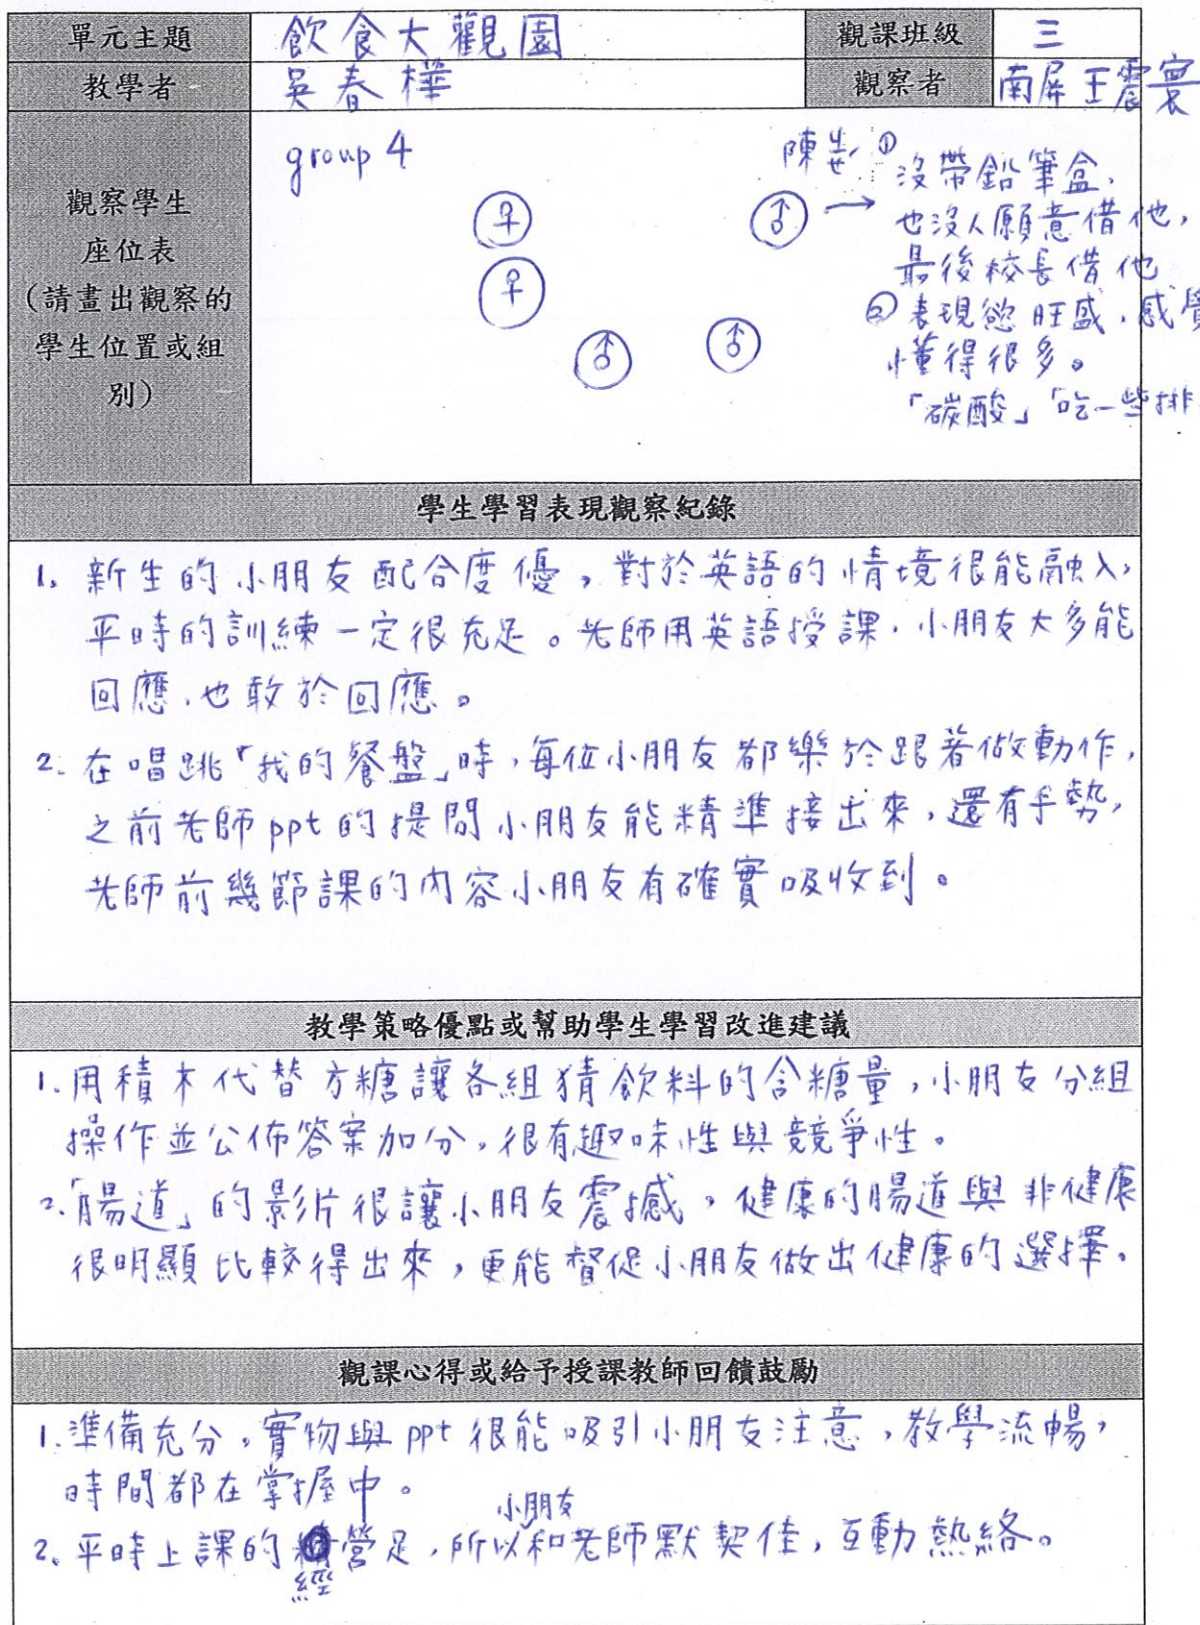 單元主題 飲食大觀園 觀課班級 三
教學者 吳春樺 觀察者 南屏王震寰
觀察學生
座位表
(請畫出觀察的
學生位置或組
別)
group 4
陳 ①
沒帶鉛筆盒、
也沒人願意借他,
最後校長借他
② 表現慾旺盛,感覺
懂得很多。
「碳酸」「吃一些排
學生學習表現觀察紀錄
1. 新生的小朋友配合度優,對於英語的情境很能融入,
平時的訓練一定很充足。老師用英語授課,小朋友大多能
回應,也敢於回應。
2. 在唱跳「我的餐盤」時,每位小朋友都樂於跟著做動作,
之前老師ppt的提問小朋友能精準接出來,還有手勢,
老師前幾節課的內容小朋友有確實吸收到。
教學策略優點或幫助學生學習改進建議
1. 用積木代替方糖讓各組猜飲料的含糖量,小朋友分組
操作並公佈答案加分,很有趣味性與競爭性。
2. 「腸道」的影片很讓小朋友震撼,健康的腸道與非健康
很明顯比較得出來,更能督促小朋友做出健康的選擇。
觀課心得或給予授課教師回饋鼓勵
1. 準備充分,實物與ppt很能吸引小朋友注意,教學流暢,
時間都在掌握中。
2. 平時上課的經營足,所以小朋友和老師默契佳,互動熱絡。